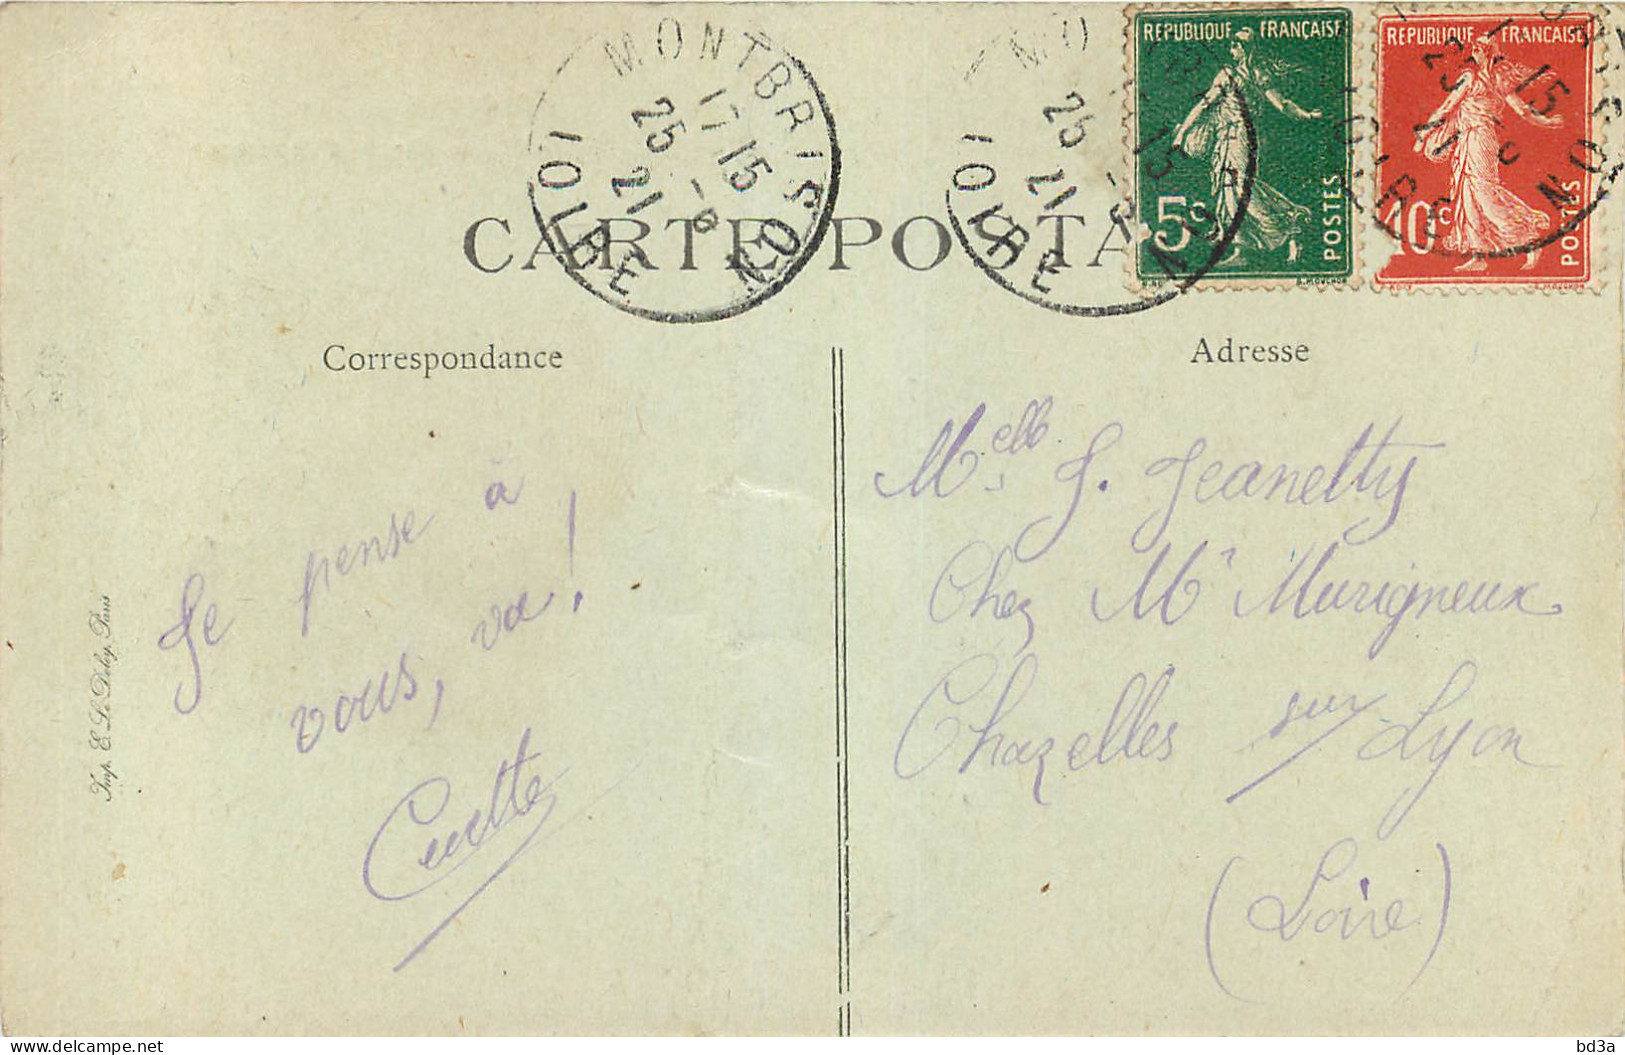 CARTE POSTA
MONTBRISON
17 15
25 - 8
21
LOIRE
MO
25
21
LOIRE
REPUBLIQUE FRANÇAISE
5c
POSTES
REPUBLIQUE FRANÇAISE
10c
POSTES
Correspondance
Je pense à
vous, va !
Adresse
Melle J. Jeanetty
Chez Mr Murigneux
Chazelles sur Lyon
(Loire)
Imp. E. Le Deley, Paris
bd3a